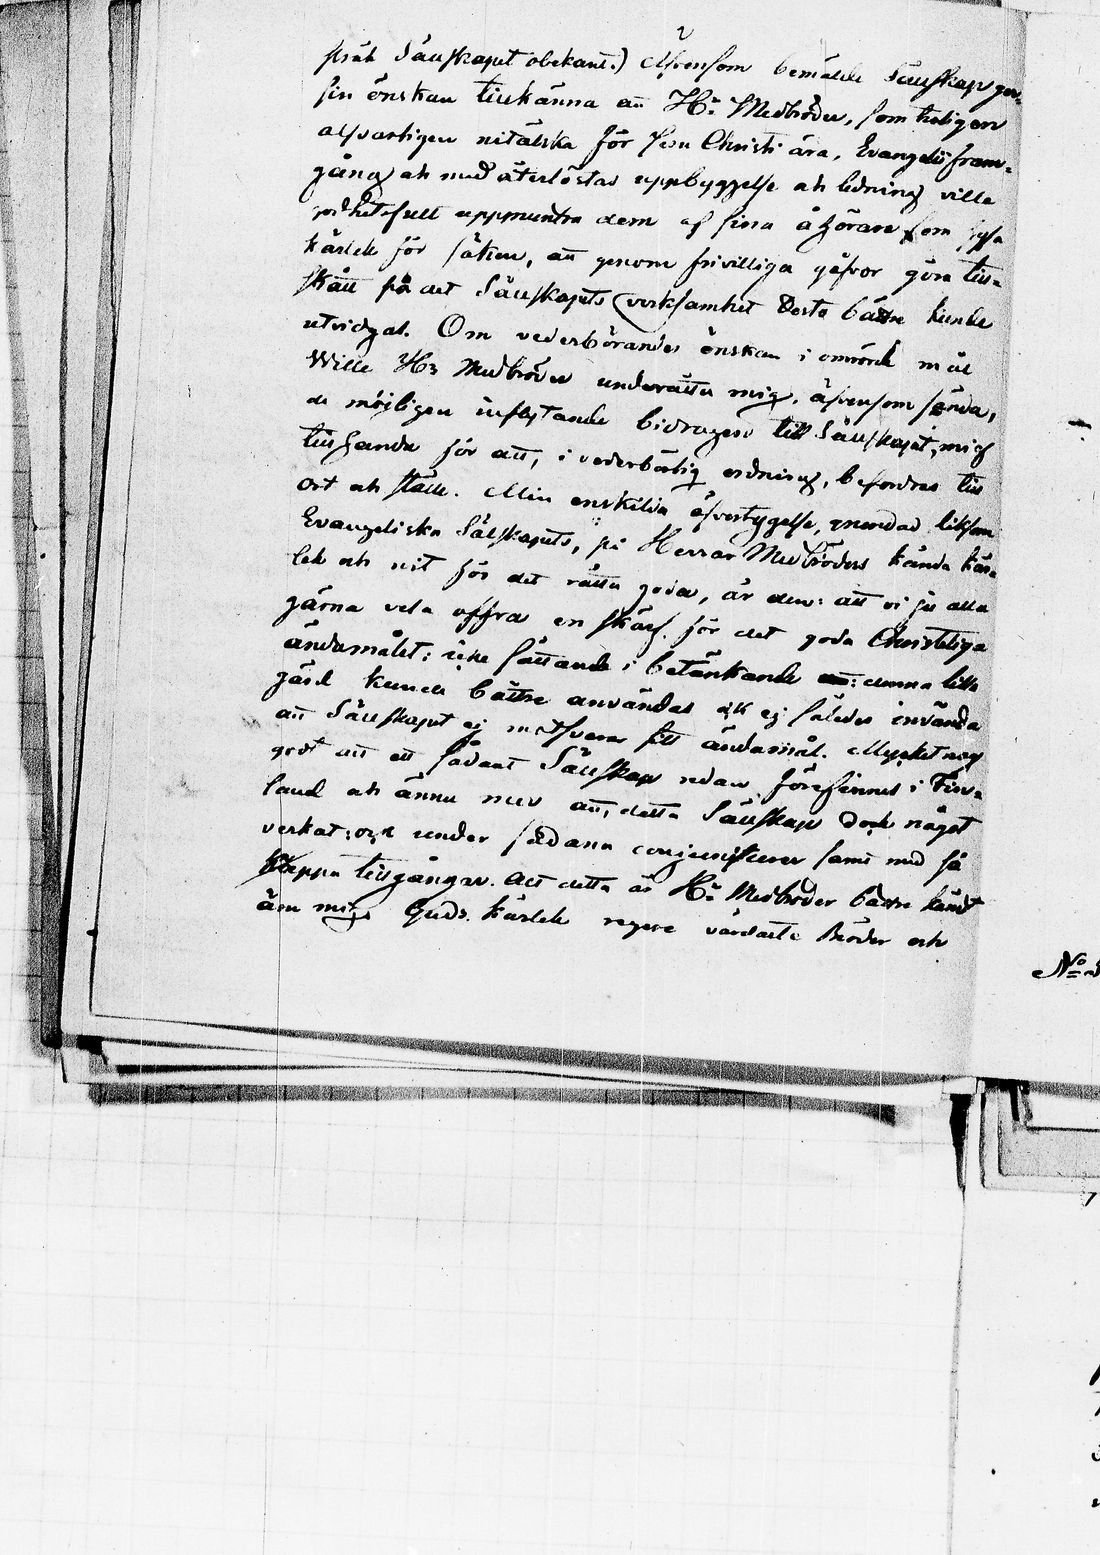 språk Sällskapet obekant.) Äfvensom bemälde Sällskap ger
sin önskan tillkänna att H:r Medbröder, som troligen
alfvarligen nitälska för Jesu Christi ära, Evangelii fram-
gång och med återlöstas uppbyggelse och ledning ville
godhetsfullt uppmuntra dem af sina åhörare som hysa
kärlek för saken, att genom frivilliga gåfvor göra till-
skått på det Sällskapets verksamhet desto bättre kunde
utvidgas. Om vederbörandes önskan i omrörde mål
Wille H:r Medbröder underrätta mig, äfvensom sända,
de möjligen inflytande bidragen till Sällskapet, mig
tillhanda för att, i vederbörlig ordning, befordras till
ort och ställe. Min enskilda öfvertygelse, grundad liksom
Evangeliska Sälskapets, på Herrar Medbröders kända kär-
lek och nit för det rätta goda, är den: att vi ju alla
gärna vela offra en skärf för det goda Christeliga
ändamålet: icke sättande i betänkande att: denna lilla
gärd kunde bättre användas och ej således invända
att Sällskapet ej motsvarar sitt ändamål. Mycket nog
godt att ett sådant Sällskap redan förefinnes i Fin-
land och ännu mer att, detta Sällskap dock något
verkat; och under sådana conjuncturer samt med så
knappa tillgångar. Att detta är H:r Medbröder bättre kändt
än mig. Guds kärlek regere värdaste Bröder och
N:o